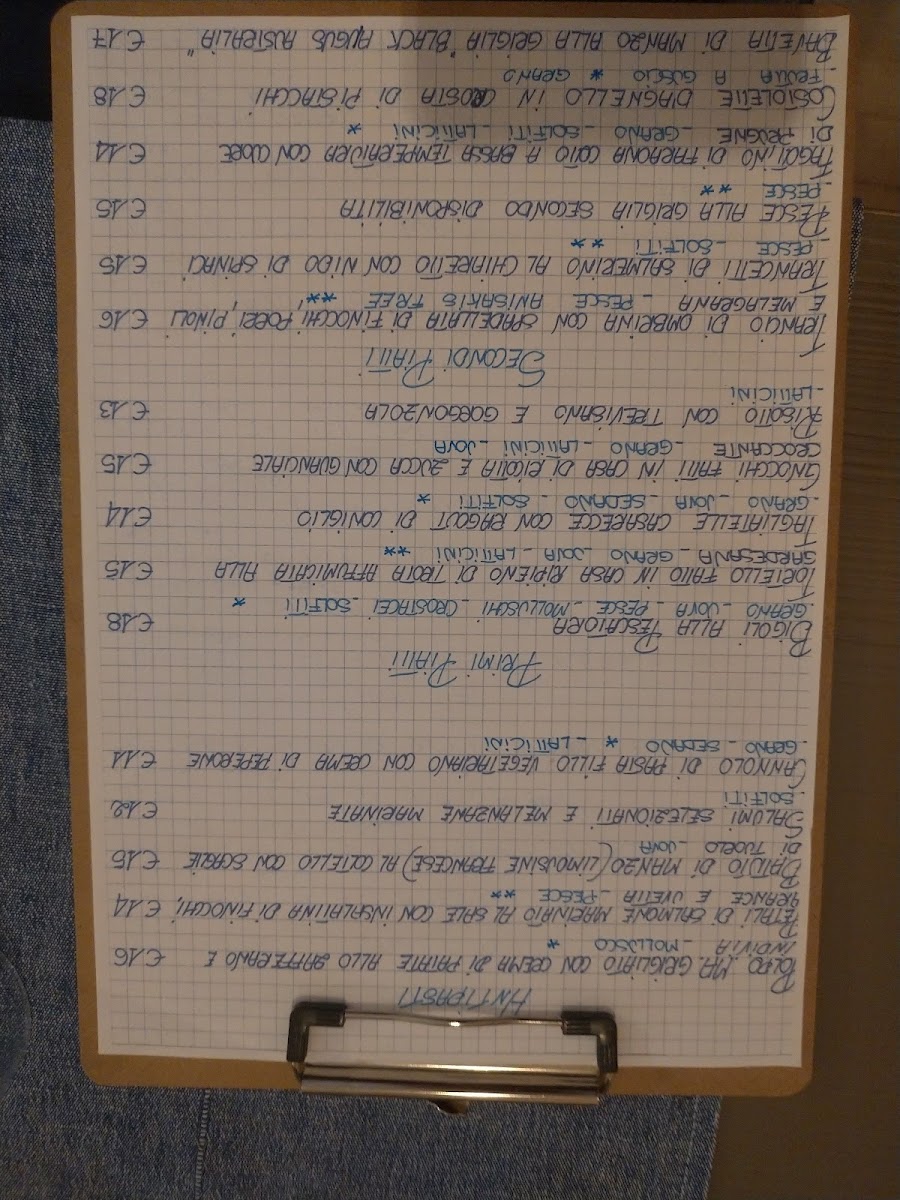 ANTIPASTI
POLPO MA GRIGLIATO CON CREMA DI PATATE ALLO ZAFFERANO E € 16
INDIVIA - MOLLUSCO *
PETALI DI SALMONE MARINATO AL SALE CON INSALATINA DI FINOCCHI, € 14
ARANCE E UVETTA - PESCE **
BATTUTO DI MANZO (LIMOUSINE FRANCESE) AL COLTELLO CON SCAGLIE € 15
DI TUORLO - UOVA
SALUMI SELEZIONATI E MELANZANE MARINATE € 12
- SOLFITI
CANNOLO DI PASTA FILLO VEGETARIANO CON CREMA DI PEPERONE € 11
- GRANO - SEDANO * - LATTICINI
PRIMI PIATTI
BIGOLI ALLA PESCATORA € 18
- GRANO - UOVA - PESCE - MOLLUSCHI - CROSTACEI SOLFITI *
TORTELLO FATTO IN CASA RIPIENO DI TROTA AFFUMICATA ALLA € 15
GARDESANA - GRANO - UOVA - LATTICINI **
TAGLIATELLE CASARECCE CON RAGOUT DI CONIGLIO € 14
- GRANO - UOVA - SEDANO - SOLFITI *
GNOCCHI FATTI IN CASA DI RICOTTA E ZUCCA CON GUANCIALE € 15
CROCCANTE - GRANO - LATTICINI - UOVA
RISOTTO CON TREVISANO E GORGONZOLA € 13
- LATTICINI
SECONDI PIATTI
TRANCIO DI OMBRINA CON SPADELLATA DI FINOCCHI, PORRI, PINOLI € 16
E MELAGRANA - PESCE ANISAKIS FREE **
TRANCETTI DI SALMERINO AL CHIARETTO CON NIDO DI SPINACI € 15
- PESCE - SOLFITI **
PESCE ALLA GRIGLIA SECONDO DISPONIBILITÀ € 15
- PESCE **
FAGOTTINO DI FARAONA COTTO A BASSA TEMPERATURA CON CUORE € 14
DI PRUGNE - GRANO - SOLFITI - LATTICINI *
COSTOLETTE D'AGNELLO IN CROSTA DI PISTACCHI € 18
- FRUTTA A GUSCIO * GRANO
BAVETTA DI MANZO ALLA GRIGLIA "BLACK ANGUS AUSTRALIA" € 17